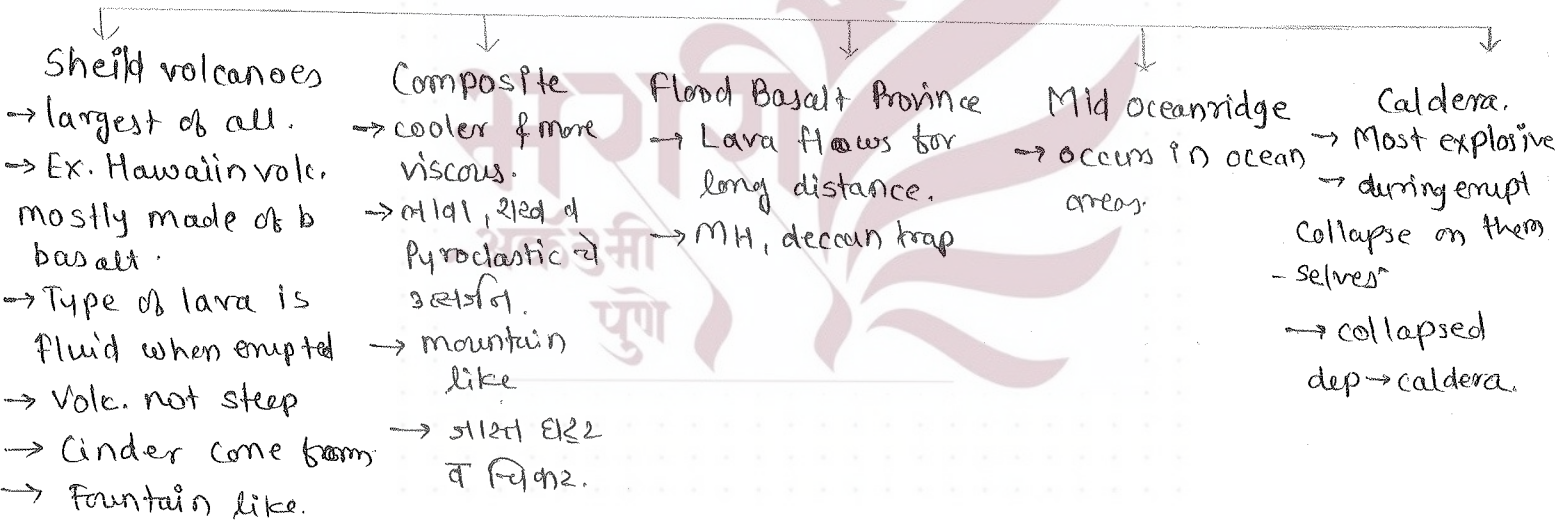 Sheild volcanoes
→ largest of all.
→ Ex. Hawaiin volc.
mostly made of b
basalt.
→ Type of lava is
fluid when erupted
→ Volc. not steep
→ Cinder cone from
→ Fountain like.
Composite
→ cooler & more
viscous.
→ लावा, राख व
Pyroclastic चे
उत्सर्जन.
→ mountain
like
→ जास्त घट्ट
व चिकट.
Flood Basalt Province
→ Lava flows for
long distance.
→ MH, deccan trap
Mid oceanridge
→ occurs in ocean
areas.
Caldera.
→ Most explosive
→ during erupt
Collapse on them
- selves
→ collapsed
dep→caldera.
भगीरथ
अकॅडमी
पुणे